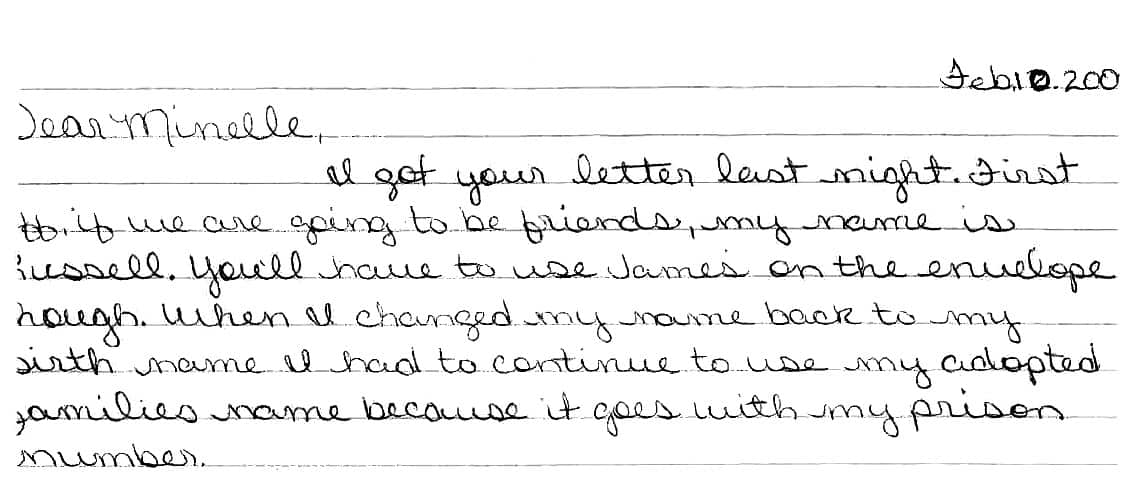 Feb.10.200
Dear Minelle,
I got your letter last night. First
if we are going to be friends, my name is
ussell. You'll have to use James on the envelope
hough. When I changed my name back to my
birth name I had to continue to use my adopted
families name because it goes with my prison
number.